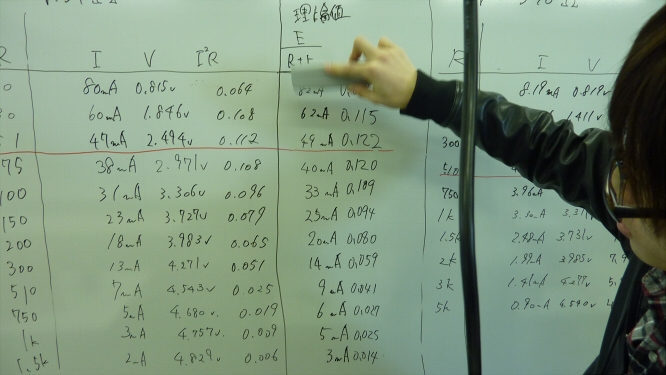 理論値
E
R I V I²R R+r R I V
0 80mA 0.815v 0.064 82mA 8.19mA 0.819v
30 60mA 1.846v 0.108 62mA 0.115 1.411v
51 47mA 2.494v 0.112 49mA 0.122 300
75 38mA 2.971v 0.108 40mA 0.120 510
100 31mA 3.306v 0.096 33mA 0.109 750 3.96mA
150 23mA 3.727v 0.079 25mA 0.094 1k 3.30mA 3.31
200 18mA 3.983v 0.065 20mA 0.080 1.5k 2.48mA 3.731v
300 13mA 4.271v 0.051 14mA 0.059 2k 1.99mA 3.985v
510 7mA 4.543v 0.025 9mA 0.041 3k 1.41mA 4.277v
750 5mA 4.680v 0.019 6mA 0.027 5k 0.90mA 4.540v
1k 3mA 4.757v 0.009 5mA 0.025
1.5k 2mA 4.829v 0.006 3mA 0.014